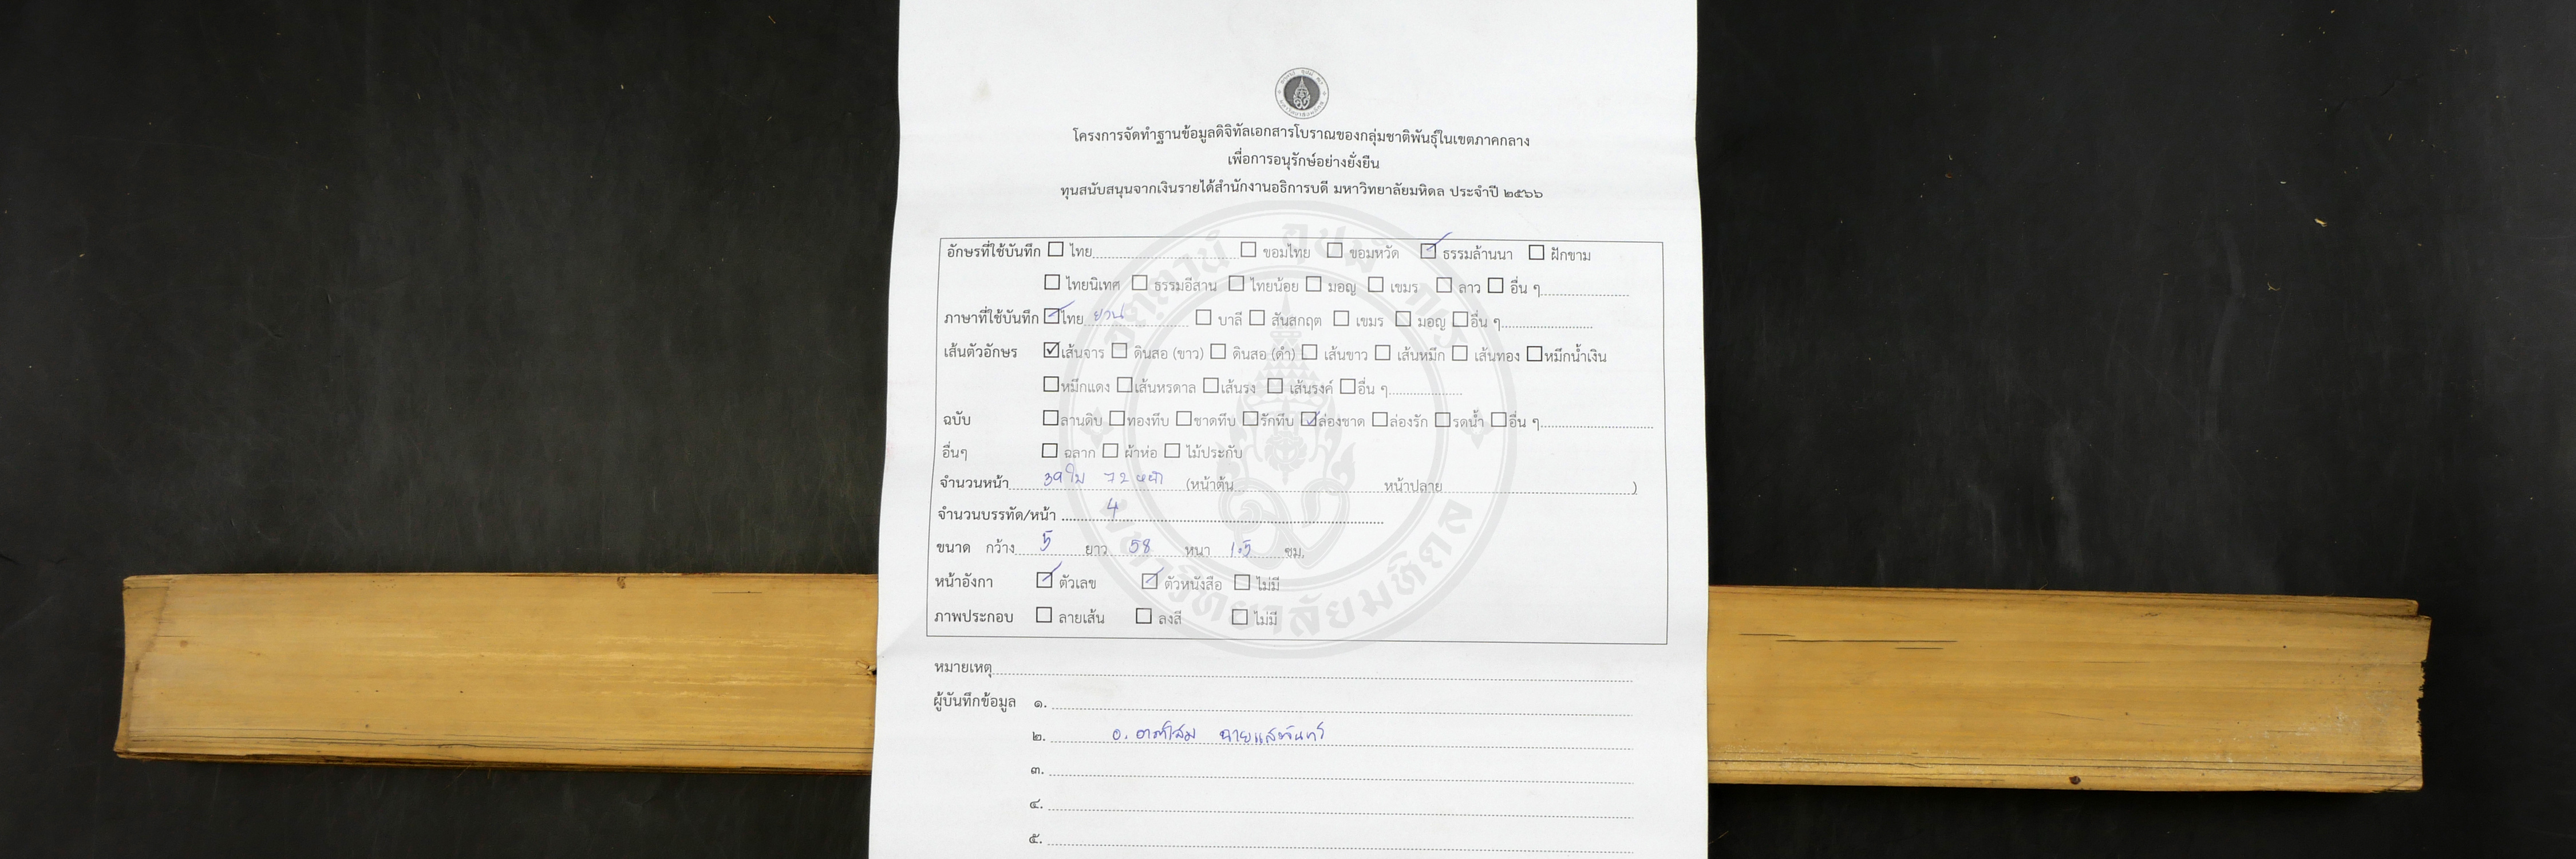 โครงการจัดทำฐานข้อมูลดิจิทัลเอกสารโบราณของกลุ่มชาติพันธุ์ในเขตภาคกลาง
เพื่อการอนุรักษ์อย่างยั่งยืน
ทุนสนับสนุนจากเงินรายได้สำนักงานอธิการบดี มหาวิทยาลัยมหิดล ประจำปี ๒๕๖๖
อักษรที่ใช้บันทึก ☐ ไทย ☐ ขอมไทย ☐ ขอมหวัด ☑ ธรรมล้านนา ☐ ฝักขาม
☐ ไทยนิเทศ ☐ ธรรมอีสาน ☐ ไทยน้อย ☐ มอญ ☐ เขมร ☐ ลาว ☐ อื่น ๆ
ภาษาที่ใช้บันทึก ☑ ไทย ยวน ☐ บาลี ☐ สันสกฤต ☐ เขมร ☐ มอญ ☐ อื่น ๆ
เส้นตัวอักษร ☑ เส้นจาร ☐ ดินสอ (ขาว) ☐ ดินสอ (ดำ) ☐ เส้นขาว ☐ เส้นหมึก ☐ เส้นทอง ☐ หมึกน้ำเงิน
☐ หมึกแดง ☐ เส้นหรดาล ☐ เส้นรง ☐ เส้นรงค์ ☐ อื่น ๆ
ฉบับ ☐ ลานดิบ ☐ ทองทึบ ☐ ชาดทึบ ☐ รักทึบ ☑ ล่องชาด ☐ ล่องรัก ☐ รดน้ำ ☐ อื่น ๆ
อื่นๆ ☐ ฉลาก ☐ ผ้าห่อ ☐ ไม้ประกับ
จำนวนหน้า 39 ใบ 72 หน้า (หน้าต้น หน้าปลาย )
จำนวนบรรทัด/หน้า 4
ขนาด กว้าง 5 ยาว 58 หนา 1.5 ซม.
หน้าอังกา ☑ ตัวเลข ☑ ตัวหนังสือ ☐ ไม่มี
ภาพประกอบ ☐ ลายเส้น ☐ ลงสี ☐ ไม่มี
หมายเหตุ
ผู้บันทึกข้อมูล ๑.
๒. อ.
๓.
๔.
๕.